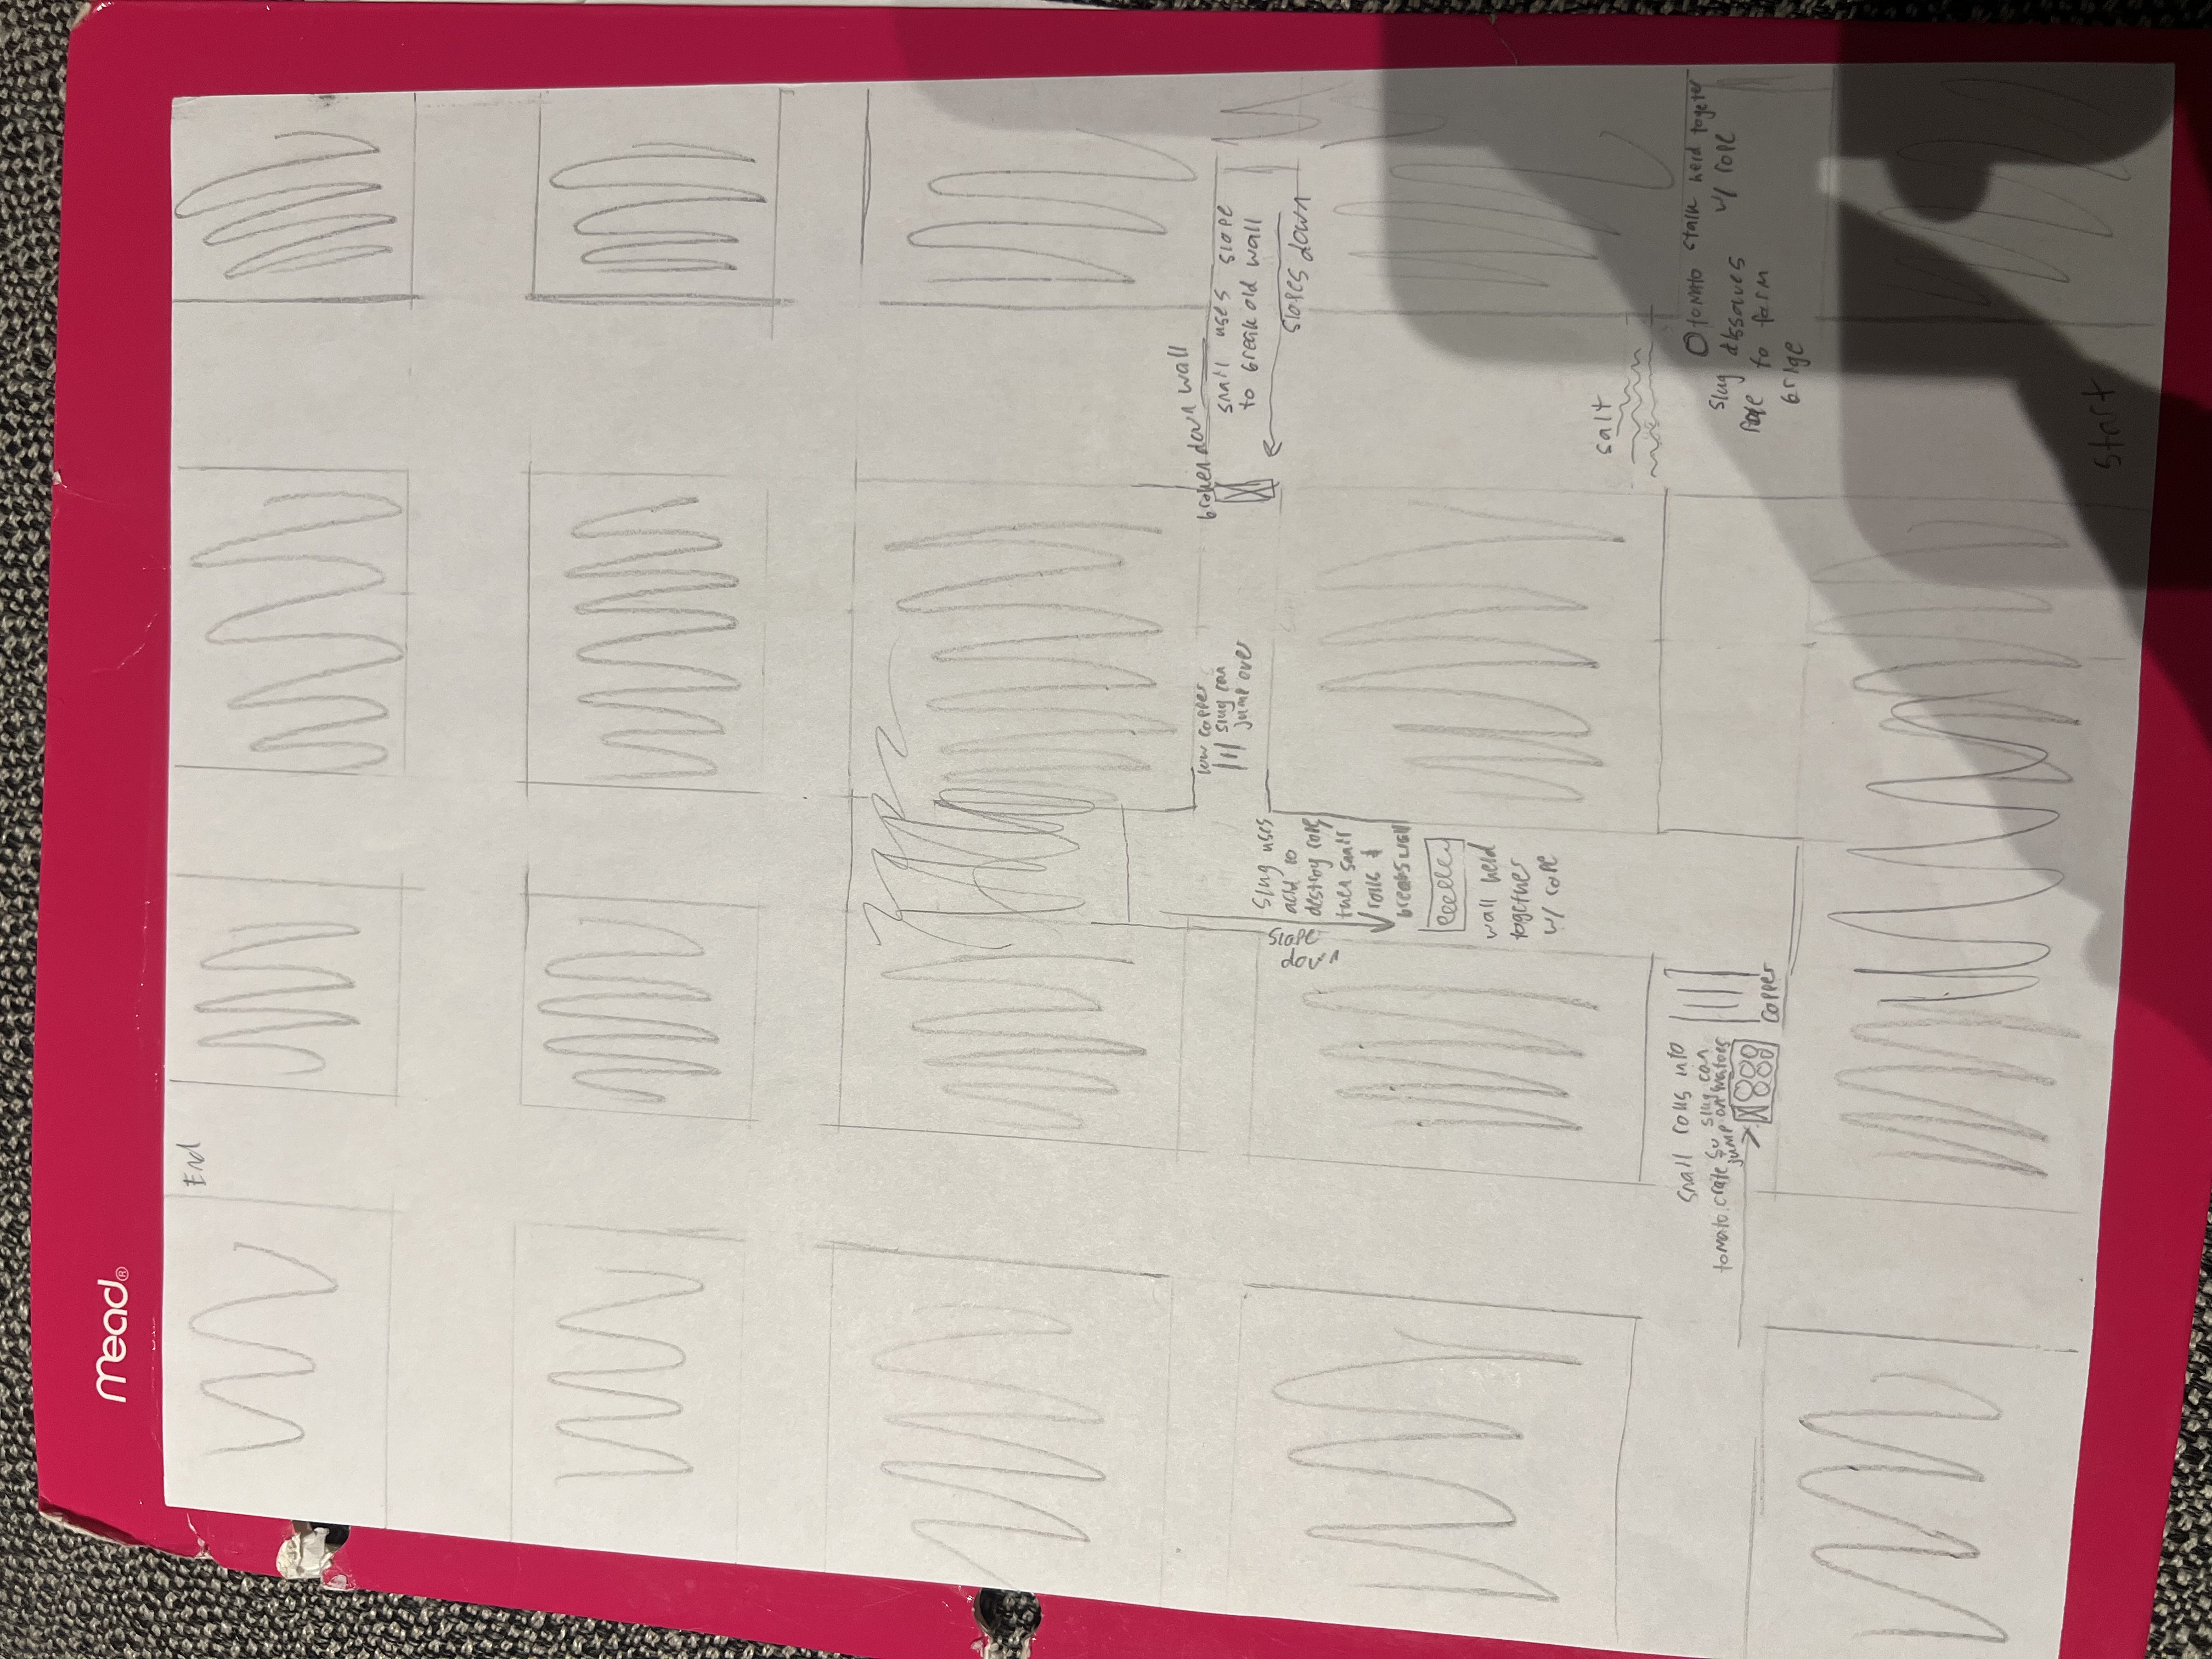 mead®
End
broken down wall
low copper
slug can
jump over
snail uses slope
to break old wall
slopes down
slope
down
slug uses
acid to
destroy rope
then snail
rolls &
breaks wall
wall held
together
w/ rope
salt
snail rolls into
tomato crate so slug can
jump on matoes
copper
tomato stalk held togeter
w/ rope
slug dissolves
rope to form
brige
Start